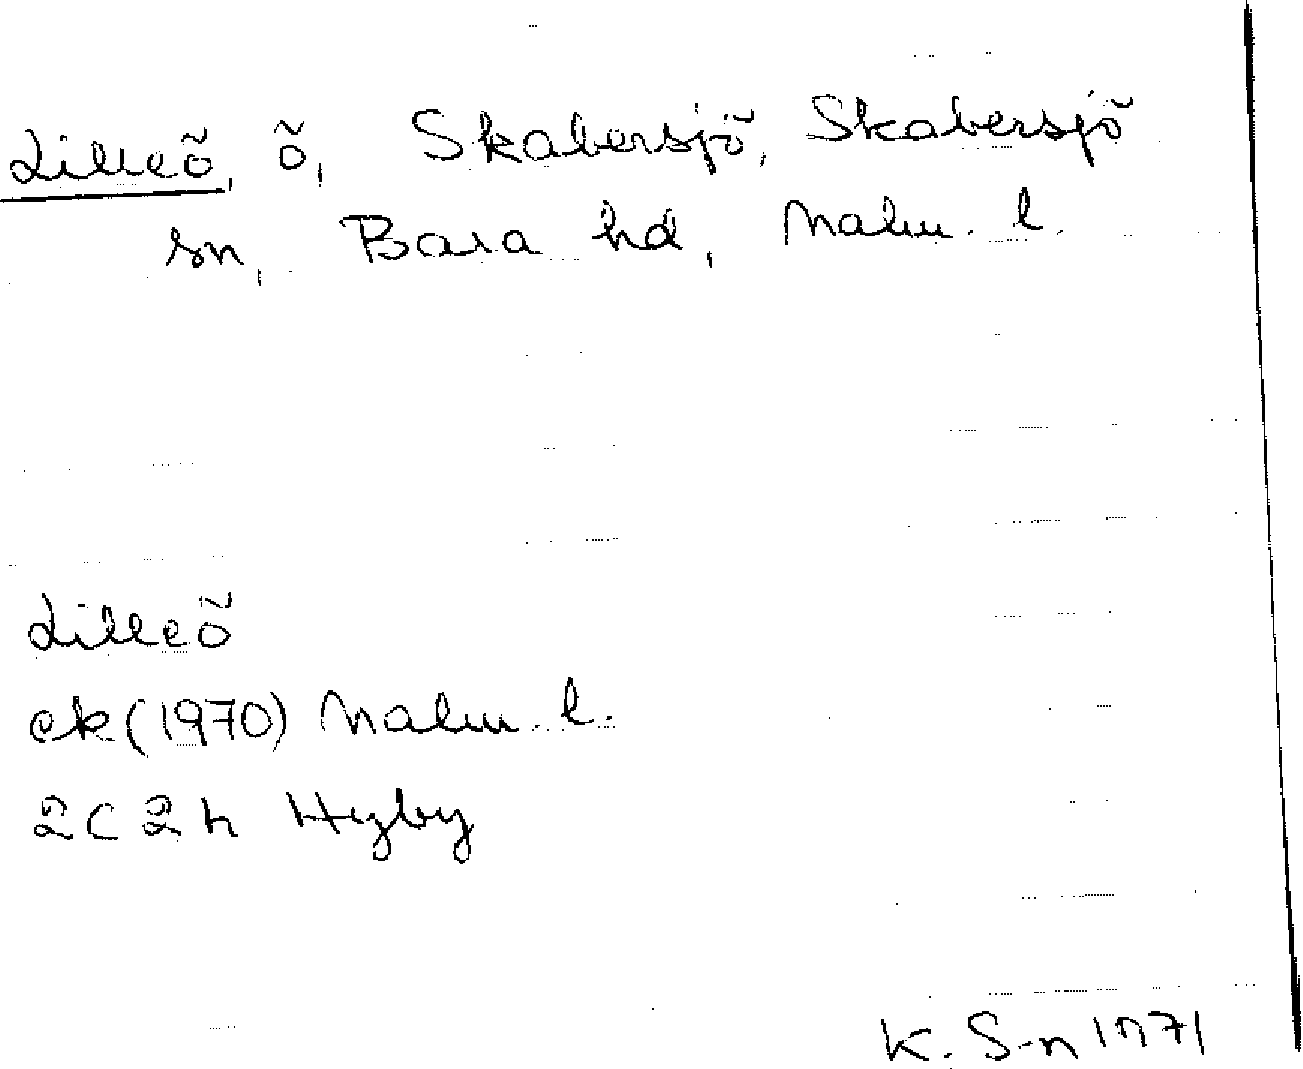 Lilleö, ö, Skabersjö, Skabersjö
sn, Bara hd, Malm. l.
Lilleö
ek (1970) Malm. l.
2C 2h Hyby
K. S-n 1971